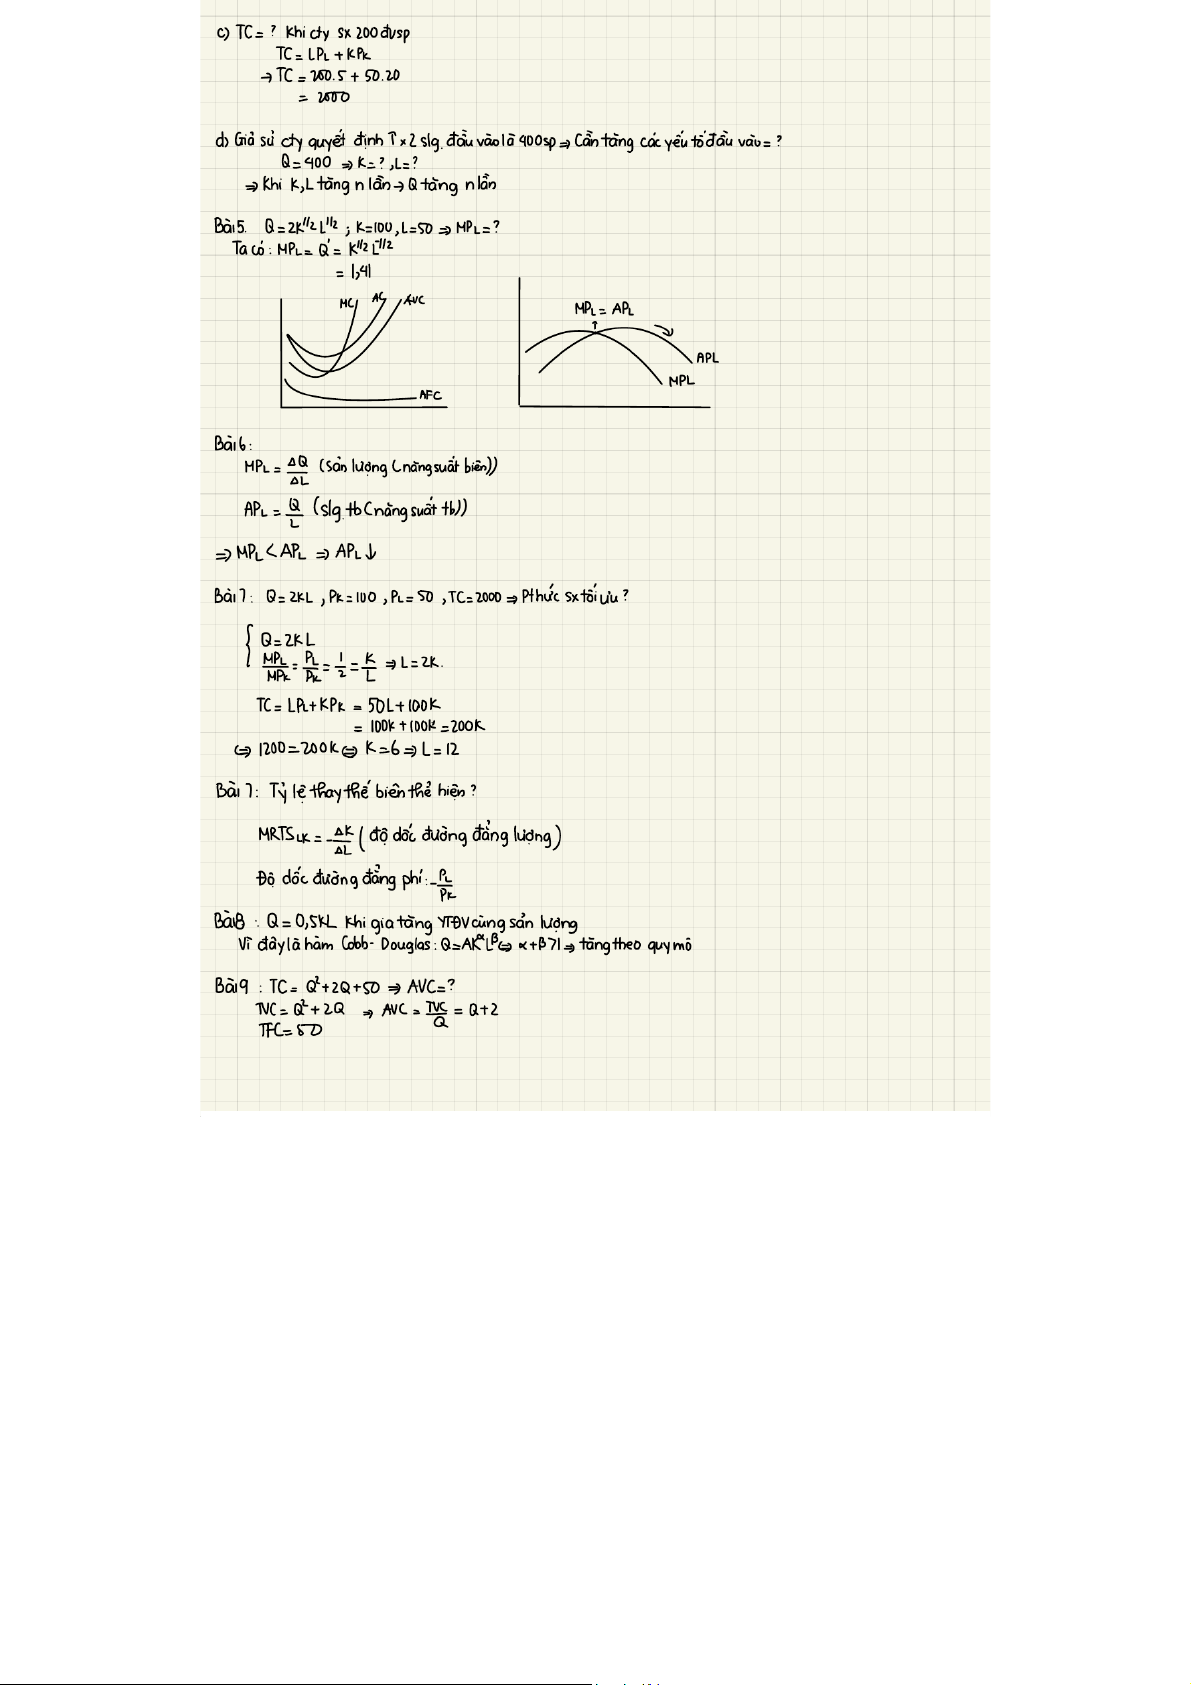 c) TC = ? Khi cty sx 200 đvsp
TC = LPL + KPK
→ TC = 200.5 + 50.20
= 2000
d) Giả sử cty quyết định ↑ x2 slg. đầu vào là 400sp ⇒ Cần tăng các yếu tố đầu vào = ?
Q = 400 ⇒ K = ?, L = ?
⇒ Khi K, L tăng n lần → Q tăng n lần
Bài 5. Q = 2K^1/2 L^1/2 ; K = 100, L = 50 ⇒ MPL = ?
Ta có: MPL = Q' = K^1/2 L^-1/2
= 1,41
MC AC AVC
AFC
MPL = APL
↑
APL
MPL
Bài 6:
MPL = ΔQ/ΔL (Sản lượng (năng suất biên))
APL = Q/L (slg. tb (năng suất tb))
⇒ MPL < APL ⇒ APL ↓
Bài 7: Q = 2KL, PK = 100, PL = 50, TC = 2000 ⇒ Pthức sx tối ưu ?
{ Q = 2KL
MPL/MPK = PL/PK = 1/2 = K/L ⇒ L = 2K.
TC = LPL + KPK = 50L + 100K
= 100K + 100K = 200K
⇔ 1200 = 200K ⇔ K = 6 ⇒ L = 12
Bài 7: Tỷ lệ thay thế biên thể hiện ?
MRTSLK = -ΔK/ΔL (độ dốc đường đẳng lượng)
Độ dốc đường đẳng phí: -PL/PK
Bài 8 : Q = 0,5KL Khi gia tăng YTĐV cùng sản lượng
Vì đây là hàm Cobb - Douglas: Q = AK^α L^β ⇔ α + β > 1 ⇒ tăng theo quy mô
Bài 9 : TC = Q² + 2Q + 50 ⇒ AVC = ?
TVC = Q² + 2Q ⇒ AVC = TVC/Q = Q + 2
TFC = 50